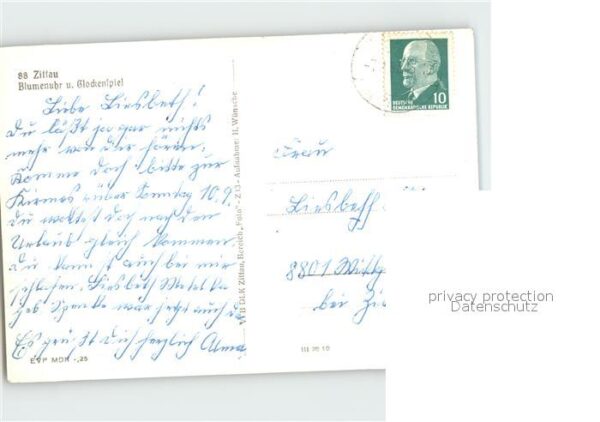 88 Zittau
Blumenuhr u. Glockenspiel
Liebe Liesbeth!
Du läßt ja gar nichts
mehr von dir hören.
Komme doch bitte zur
Kirmes über Sonntag 10.9.
Du wolltest doch nach dem
Urlaub gleich kommen.
Du kannst auch bei mir
schlafen. Liesbeth
geb war jetzt auch da
Es grüßt Dich herzlich Alma
EVP MDN -,25
VEB DLK Zittau, Bereich „Foto“ - ZO - Aufnahme: H. Wünsche
III
DEUTSCHE
DEMOKRATISCHE REPUBLIK
10
Frau
Liesbeth
8801 Wittg
bei Zi
privacy protection
Datenschutz